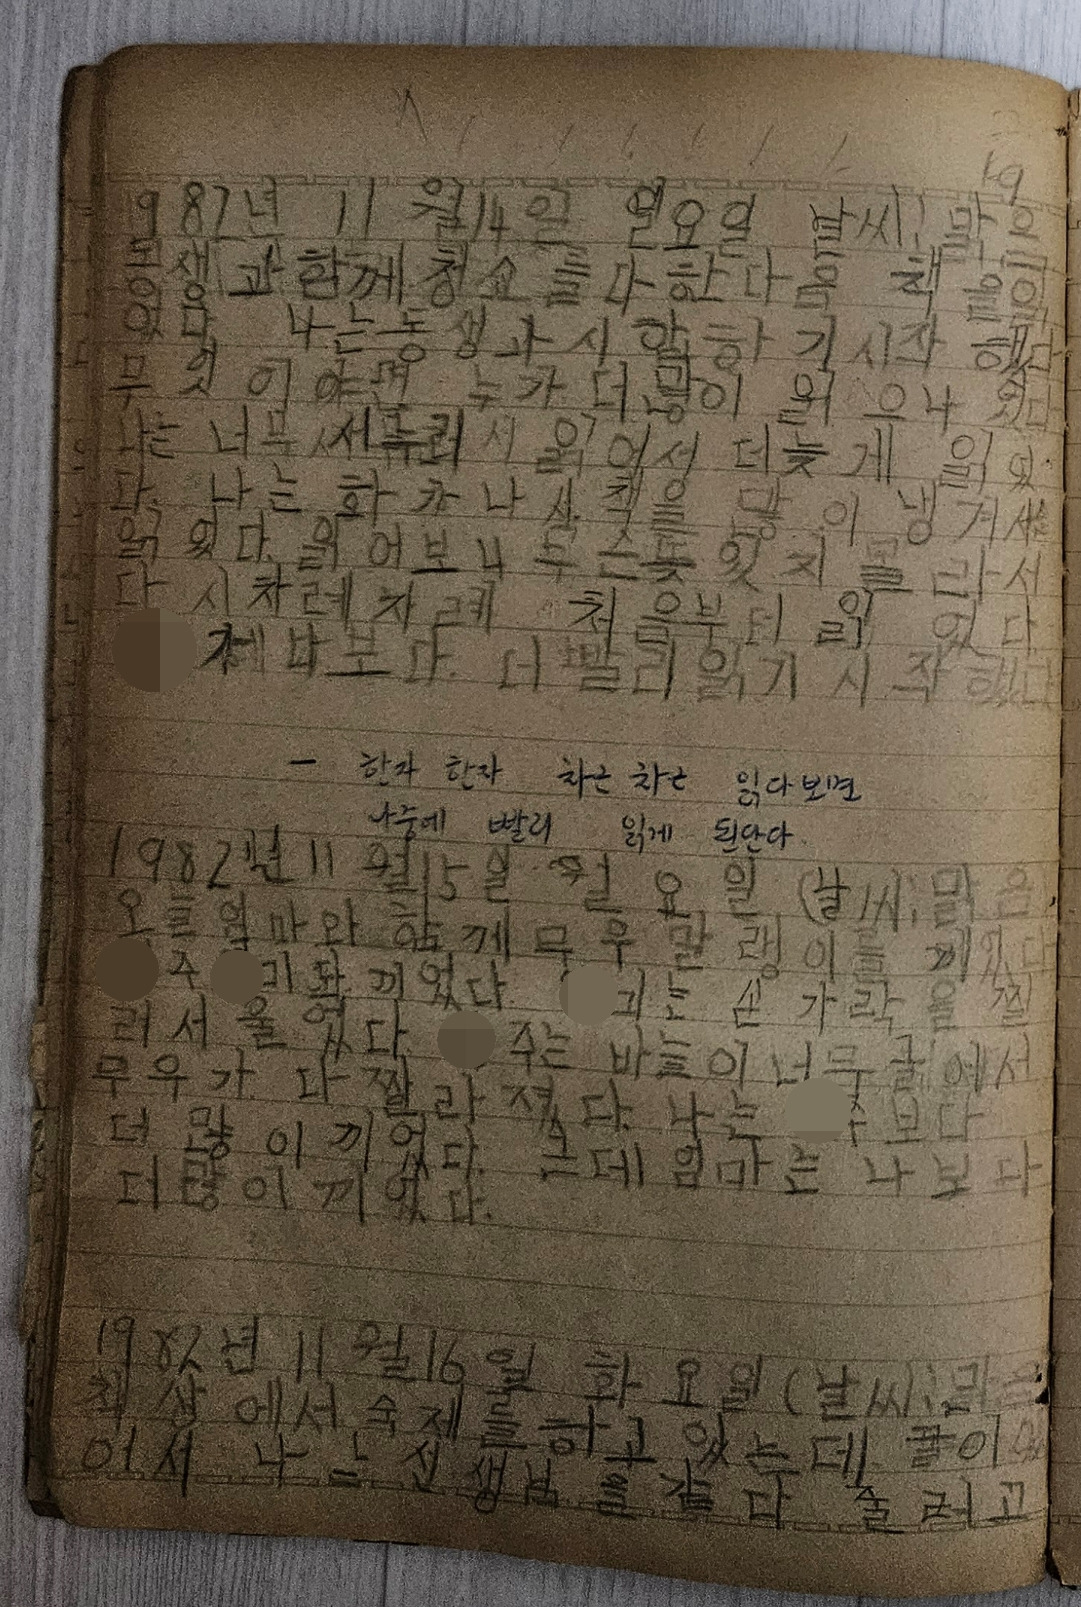 19
9 87년 11월14일 일요일 날씨: 맑음
동생과 함께 청소를 다 한 다음 책을 읽
었다 나는 동생과 시합하기 시작 했다
무엇이야면 누가 더 많이 읽으나 였다
나는 너무 서둘러서 읽어서 더 늦게 읽었
다. 나는 화가 나서 책을 많이 넹겨서
읽었다. 읽어보니 무슨 뜻잇지 몰라서
다시 차례차례 처음부터 읽었다
한테 나보다. 더 빨리 읽기 시작 했다
- 한자 한자 차근 차근 읽다보면
나중에 빨리 읽게 된단다.
1982년 11월15일 월요일 (날씨: 맑음
오늘 엄마와 함께 무우 말랭이를 끼었다
주 미와 끼었다. 긔는 손가락을 찔
러서 울었다. 주는 바늘이 너무 굵에서
무우가. 다 짤라졌다. 나는 주보다
더 많이 끼었다. 근데 엄마는 나보다
더 많이 끼었다.
1982년 11월16일 화요일 (날씨: 맑음
책상에서 숙제를 하고 있는데. 끝이 없
어서 나는 선생님을 갔다 줄려고